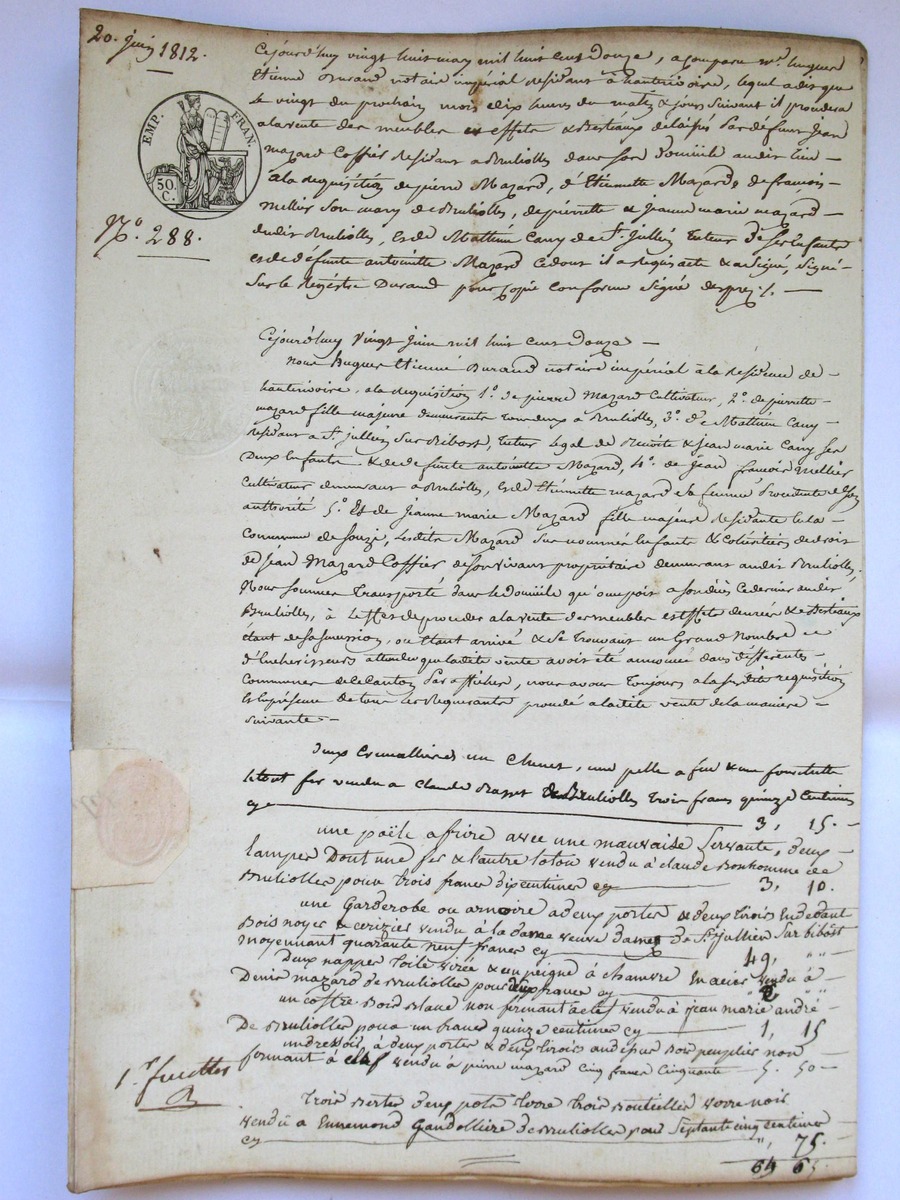 20. juin 1812.
EMP. FRAN.
50. C.
N.º 288.
Cejourd'huy vingt huit may mil huit cent Douze, a comparu mᵉ. hugues
Etienne Durand notaire impérial résidant à hauterivoire, lequel a dit que
le vingt du prochain mois dix heures du matin & jours suivant il procedera
a la vente des meubles et effets & Bestiaux delaissés par défunt jean
mazard Coffier résidant a Brulioles dans son Domicile audit lieu —
a la réquisition de pierre Mazard, d'Etiennette Mazard, & de francois —
mellier son mary de Brulioles, de pierrette & jeanne marie mazard —
dudit Brulioles, et de Mathieu Cany de St. jullien tuteur de ses enfants
et de défunte antoinette Mazard ce dont il a requis acte & a signé, signé —
sur le régistre Durand pour copie conforme signé
Cejourd'huy vingt juin mil huit cent douze —
nous hugues Etienne Durand notaire impérial à la résidence de —
hauterivoire, a la réquisition 1.º de pierre mazard Cultivateur, 2.º de pierrette —
mazard fille majeure demeurants tous deux a Brulioles, 3.º de Mathieu Cany —
résidant a St. jullien sur Bibost, tuteur légal de Benoite & jean marie Cany ses
Deux enfants & de defunte antoinette Mazard, 4.º de jean francois Mellier
Cultivateur demeurant a Brulioles, et de Etiennette mazard sa femme procedante de son
authorité 5.º Et de jeanne marie Mazard fille majeure résidante en la —
Commune de Souzy, lesdits Mazard sur nommés enfants & cohéritiers de droit
de jean Mazard Coffier de son vivant propriétaire demeurant audit Brulioles.
Nous sommes transporté dans le domicile qu'occupoit a son décès ce dernier audit
Brulioles, à l'effet de proceder a la vente des meubles et effets denrées & de Bestiaux
étant de sa succession, ou étant arrivé & se trouvant un Grand nombre
d'Encherisseurs attendu que ladite vente avoit été annoncée dans differentes —
Communes de ce Canton par affiches, nous avons toujours a la susdite requisition
et en présence de tous les requérants procédé a ladite vente de la maniere —
suivante —
Deux Cremallieres un Chenet, une pelle a feu & une fourchette
le tout fer vendu a claude Basset de Brulioles trois francs quinze centimes
cy — 3, 15. —
une poële a frire avec une mauvaise Servante, deux
lampes Dont une fer & l'autre loton vendu à claude Bonhomme de
Brulioles pour trois francs dix centimes cy — 3, 10.
une Garderobe ou armoire a deux portes & deux tirois En dedant
Bois noyer & cerizier vendu à la dame veuve Dames de St. jullien sur bibost
moyennant quarante neuf francs cy — 49, " —
Deux nappes toile virée & un peigne à chanvre En acier vendu à —
Denis mazard de Brulioles pour deux francs cy — 2 "
un coffre Bois blanc non fermant a clef vendu à jean marie andré —
De Brulioles pour un franc quinze centimes cy — 1, 15
un dressoir à deux portes & deux tirois au dessus Bois peuplier non
fermant à clef vendu à pierre mazard cinq francs cinquante — 5. 50 —
Trois Bertes deux pots terre trois Bouteilles verre noir
vendu à Ennemond Gandolliere de Brulioles pour Septante cinq centimes
cy — ", 75.
64 65.